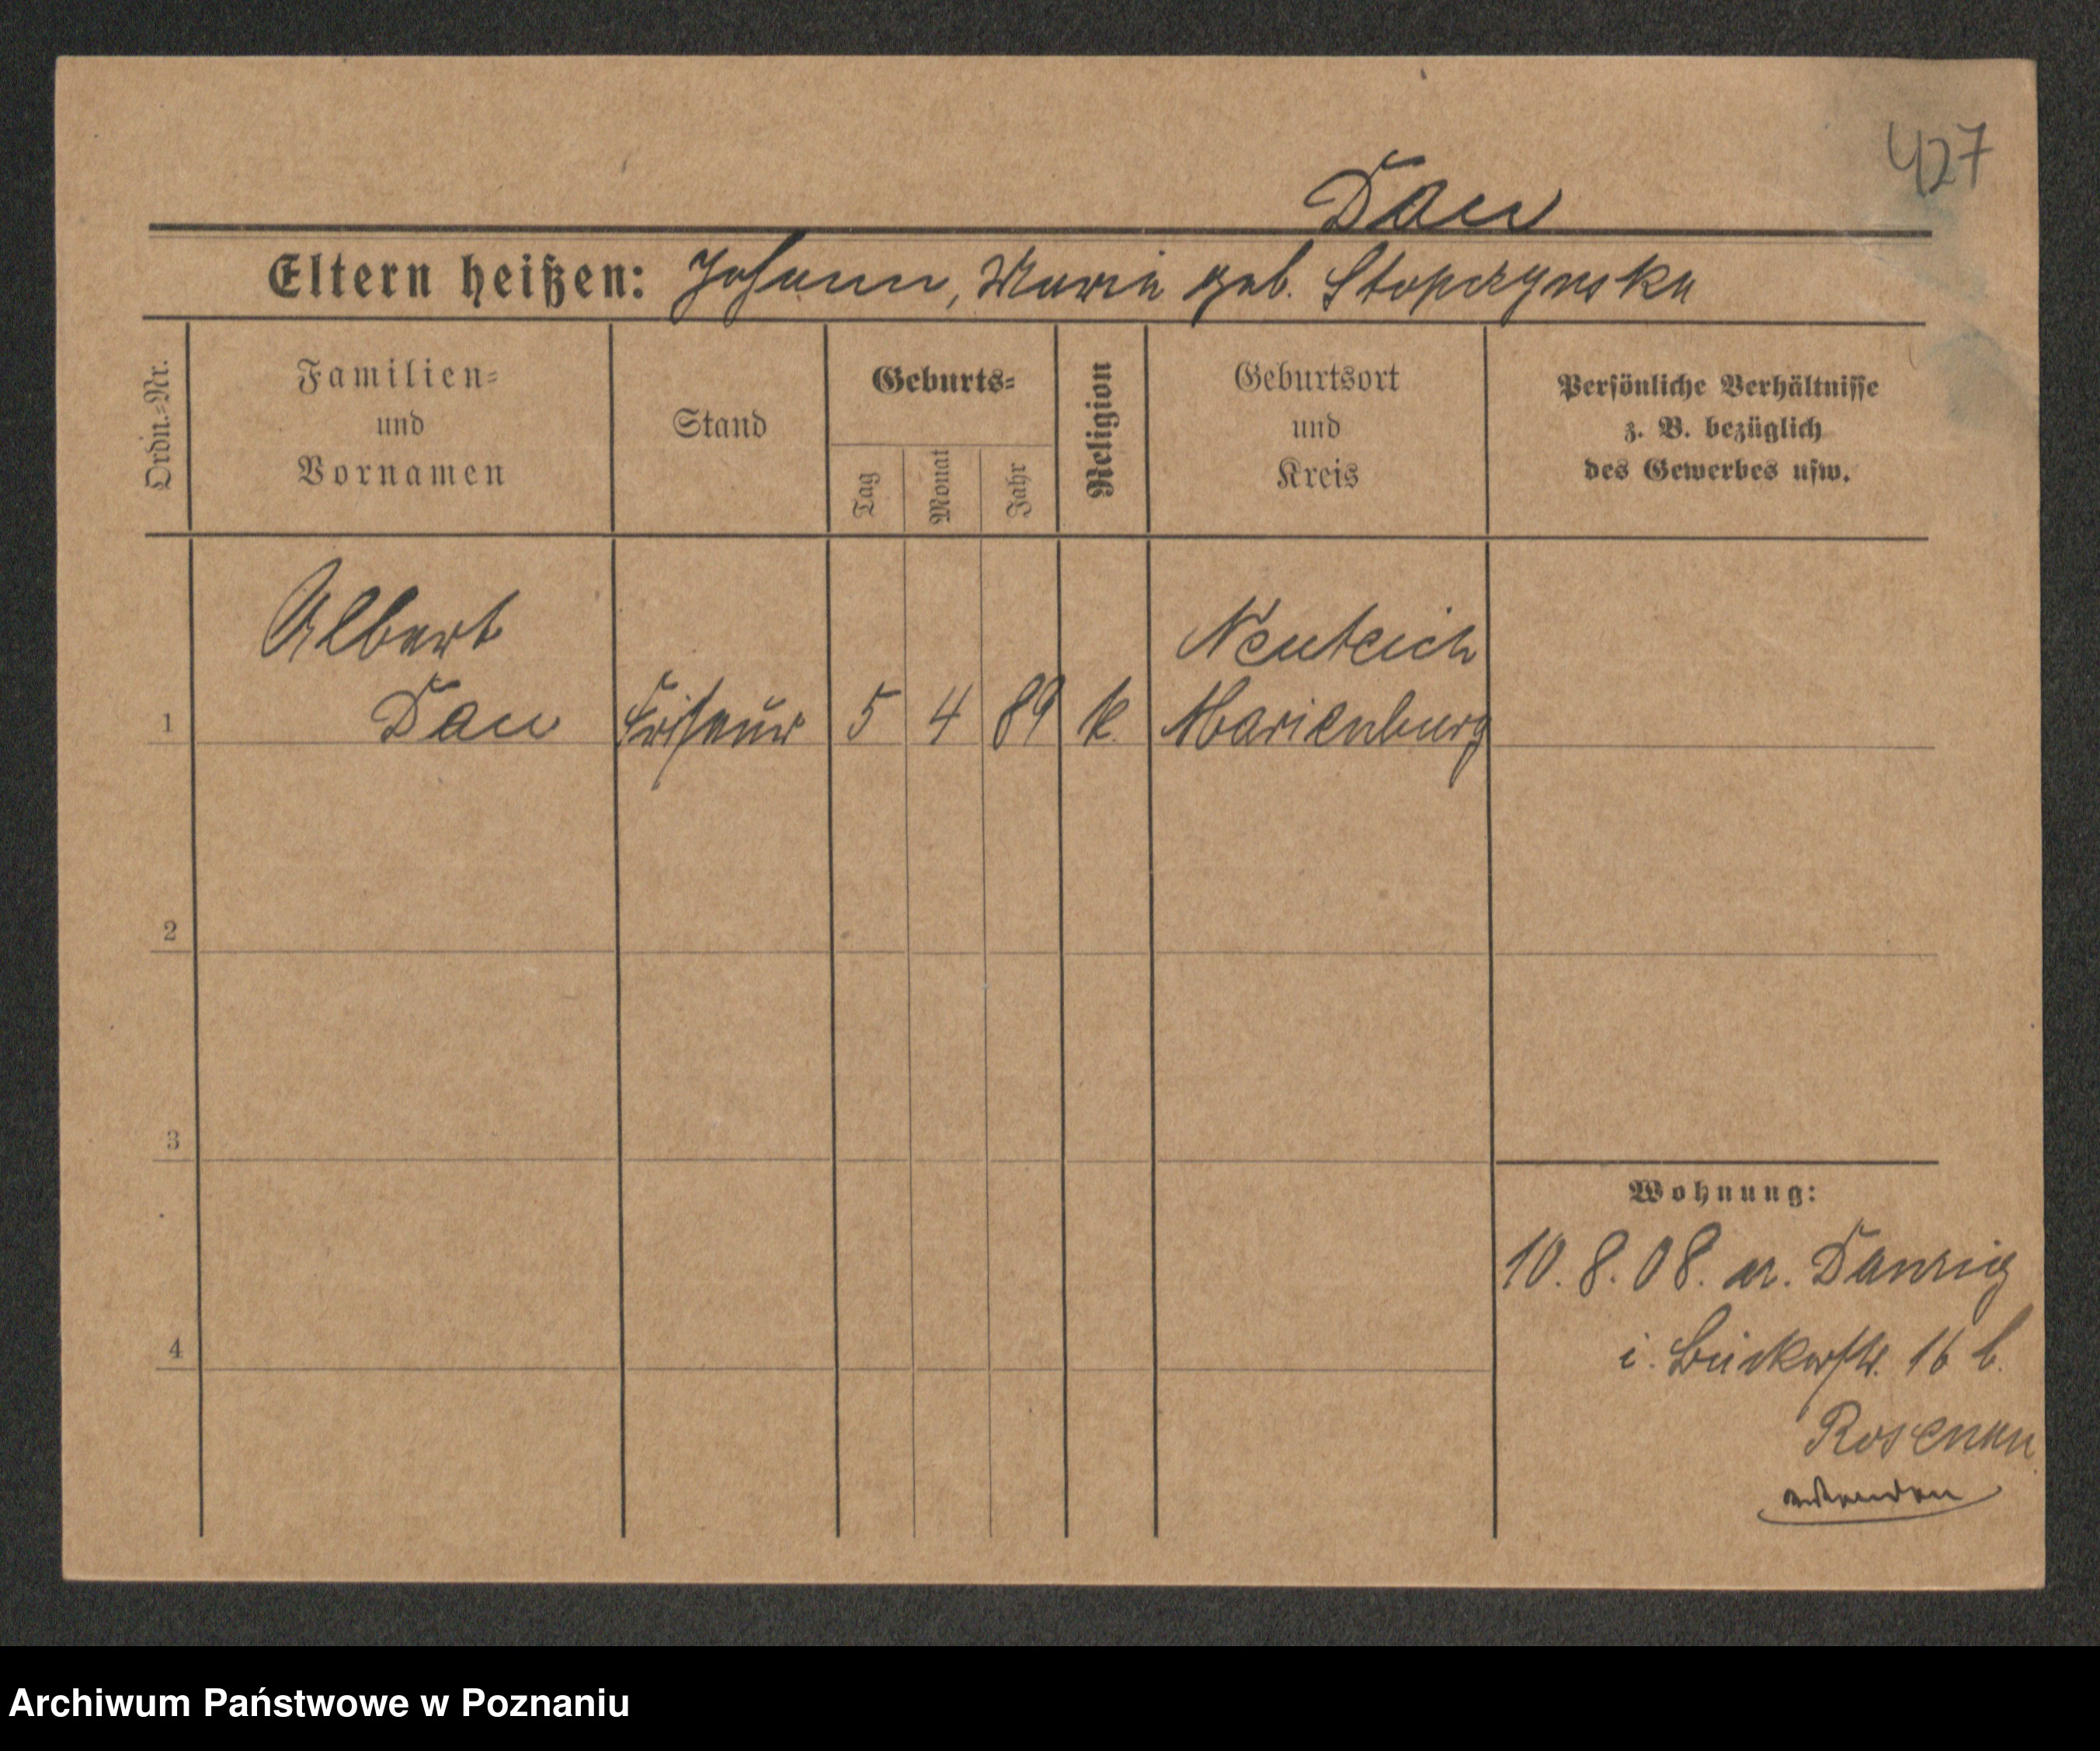 427
Dau
Eltern heißen: Johann, Maria geb. Stopczynska
Ordn.=Nr.
Familien=
und
Vornamen
Stand
Geburts=
Tag
Monat
Jahr
Religion
Geburtsort
und
Kreis
Persönliche Verhältnisse
z. B. bezüglich
des Gewerbes usw.
Albert
Neuteich
1 Dau Friseur 5 4 89 k. Marienburg
2
3
Wohnung:
10. 8. 08. a. Danzig
4
i. Bäckerstr. 16 b.
Rosenau
Archiwum Państwowe w Poznaniu